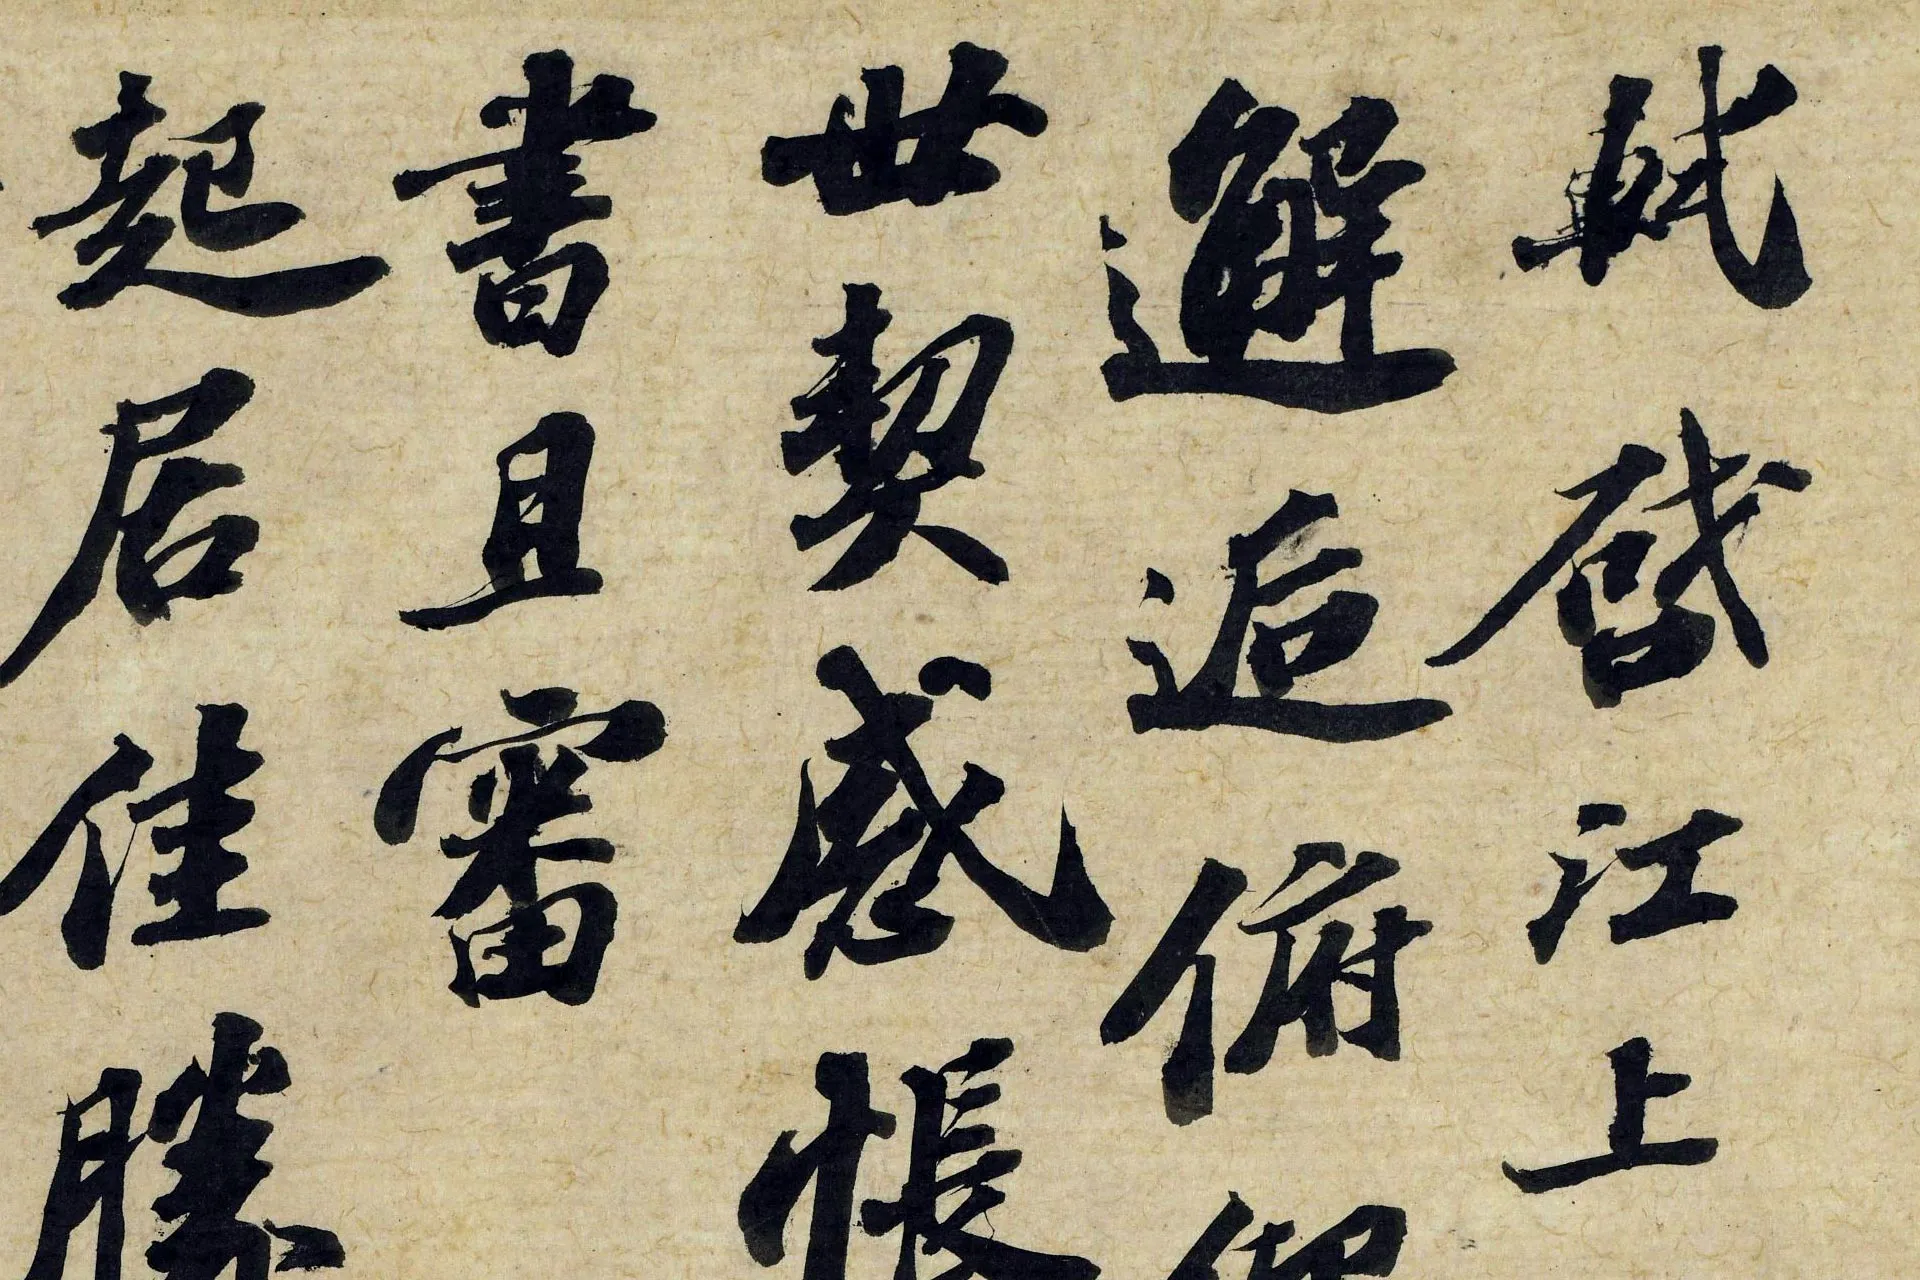 軾啓江上
邂逅俯仰
世契感悵
書且審
起居佳勝